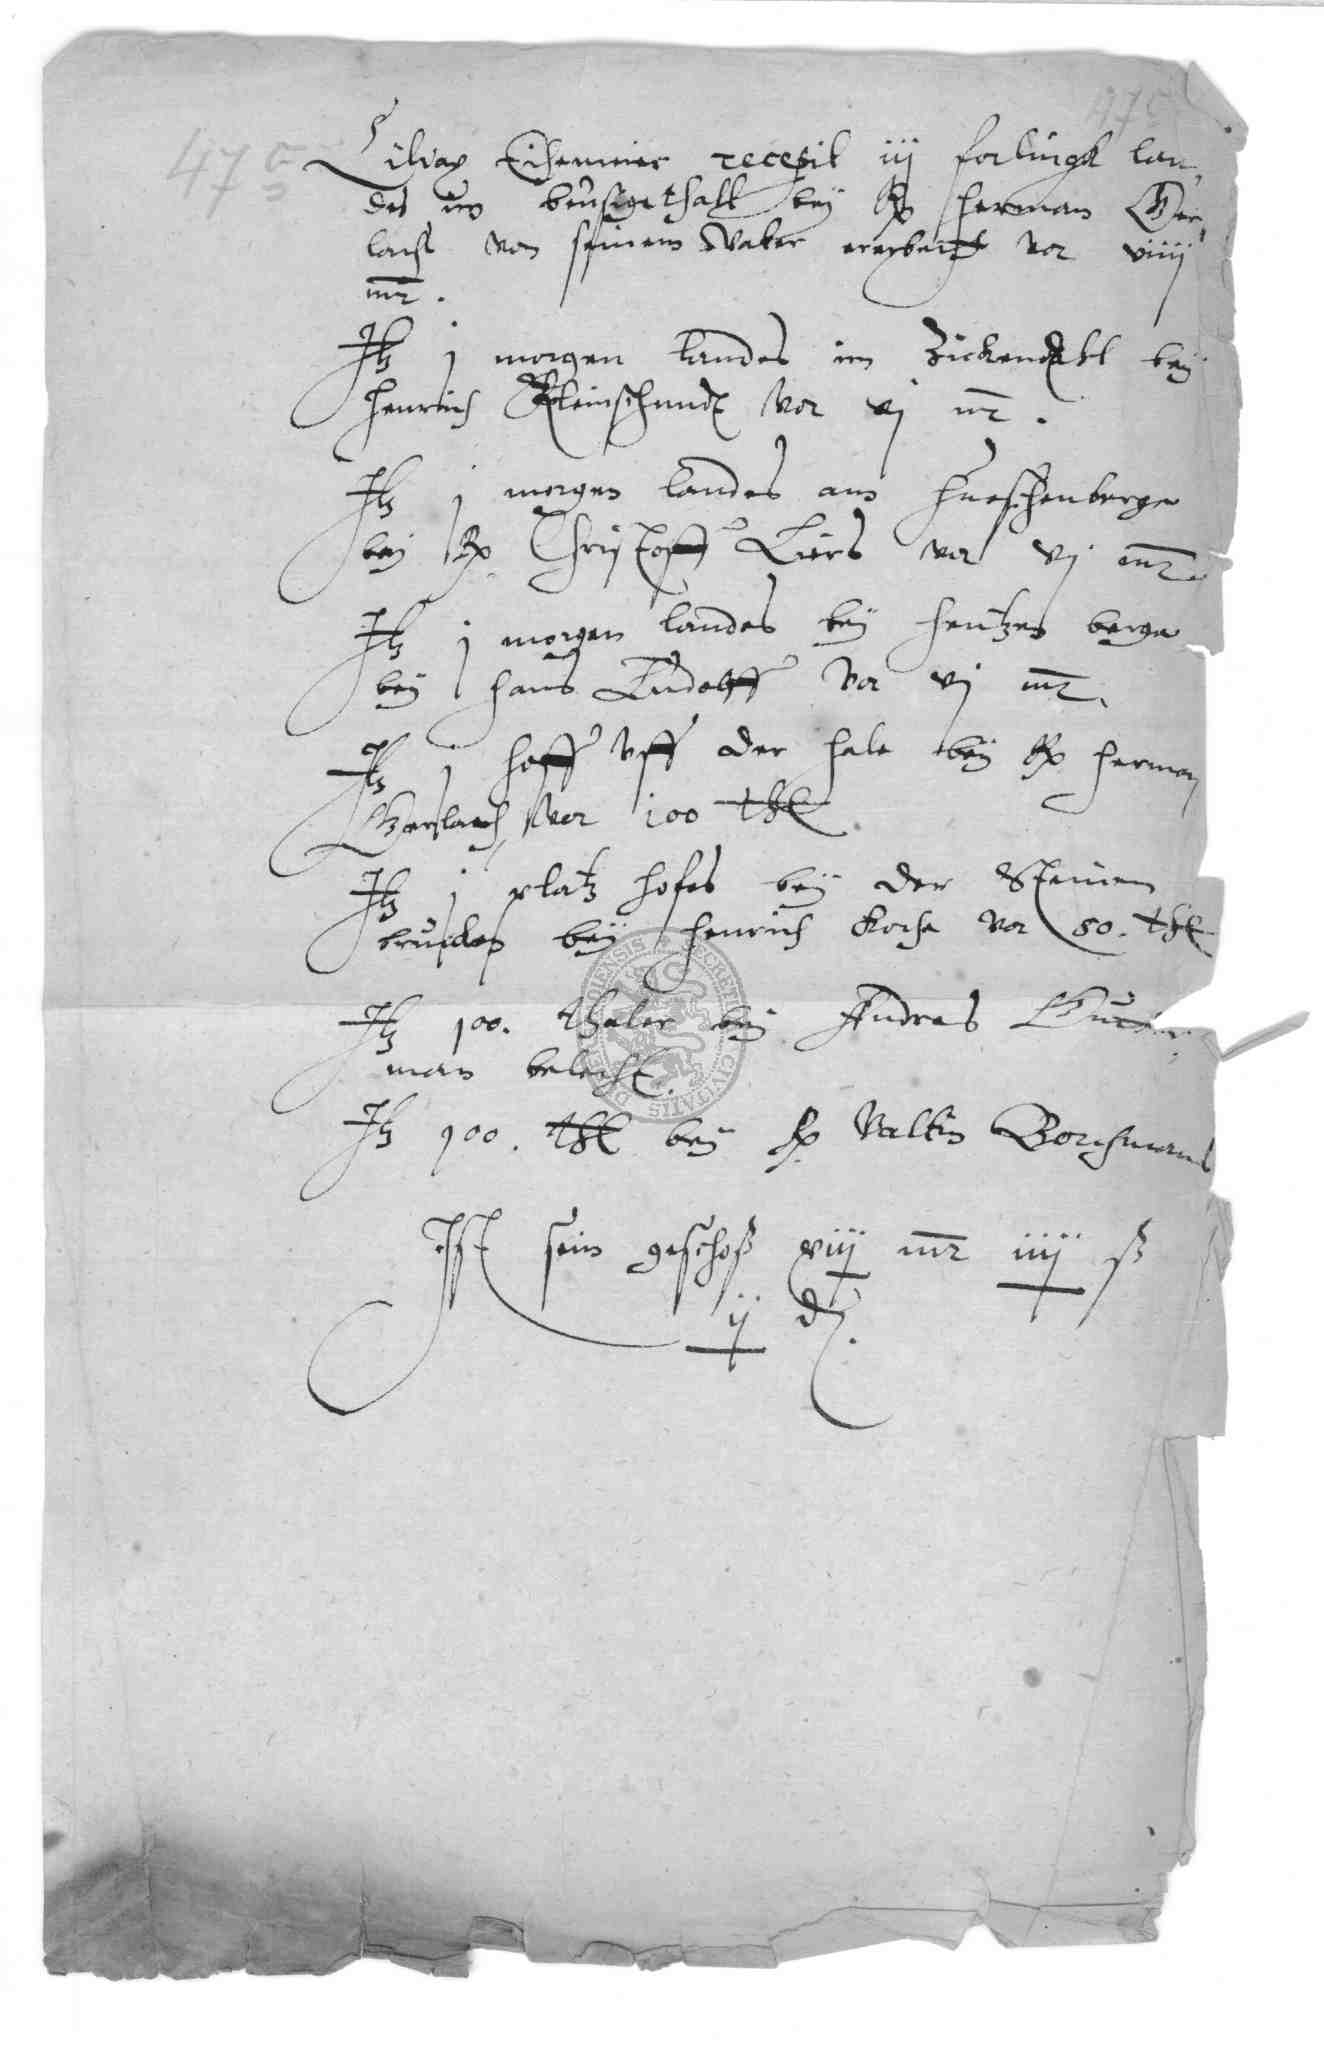 475 475
Ciliax Eisenmier recepit iij forlingk lan,
des im bensigethall beÿ Rp herman Ger,
lach von seinem Vater ererbett vor viiij
mr.
Itz j morgen landes im Zickendall beÿ
henrich Kleinschmidt vor vj mr.
Itz j morgen landes am hueschenberge
beÿ Rp Christoff Liers vor vj mr.
Itz j morgen landes beÿ hentzen berge
beÿ hans Ludolff vor vj mr.
Itz j hoff vff der hale beÿ Rp herman
Gerlach, vor 100 thl
Itz j platz hofes beÿ der Steinen
brucken beÿ henrich Koche vor 80. thl
Itz 100. thaler beÿ Andres
man belecht.
Itz 100. thl beÿ Rp Valtin Borchmans
Ist sein geschoß xviij mr iiij ß
ij d.
SECRETI CIVITATIS